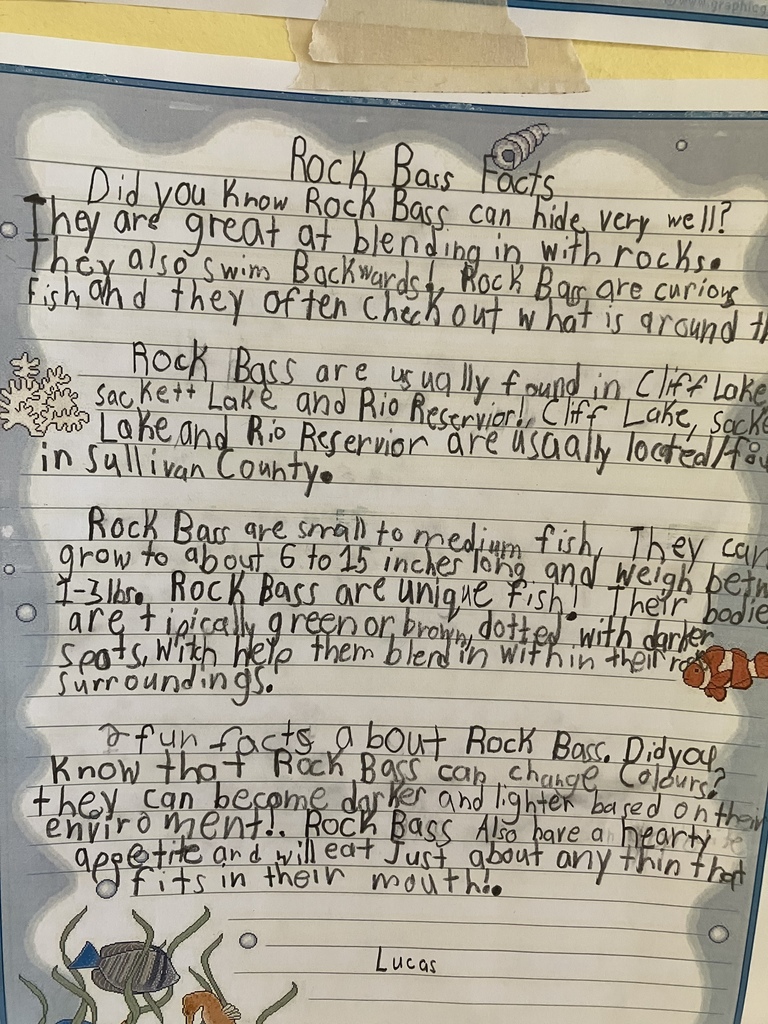 www.graphic
Rock Bass Facts
Did you Know Rock Bass can hide very well?
They are great at blending in with rocks.
They also swim Backwards! Rock Bass are curious
Fish, and they often check out what is around th
Rock Bass are usually found in Cliff Lake
sackett Lake and Rio Reservior!, Cliff Lake, sacke
Lake, and Rio Reservior are usually located/fou
in Sullivan County.
Rock Bass are small to medium fish, They can
grow to about 6 to 15 inches long and weigh betw
1-3 lbs. Rock Bass are unique fish! Their bodie
are tipically green or brown, dotted with darker
spots, with help them blend in within their
surroundings.
2 fun facts about Rock Bass. Did you
Know that Rock Bass can change Colours?
they can become darker and lighter based on their
enviroment!. Rock Bass Also have a hearty
appetite and will eat Just about any thin that
fits in their mouth!.
Lucas